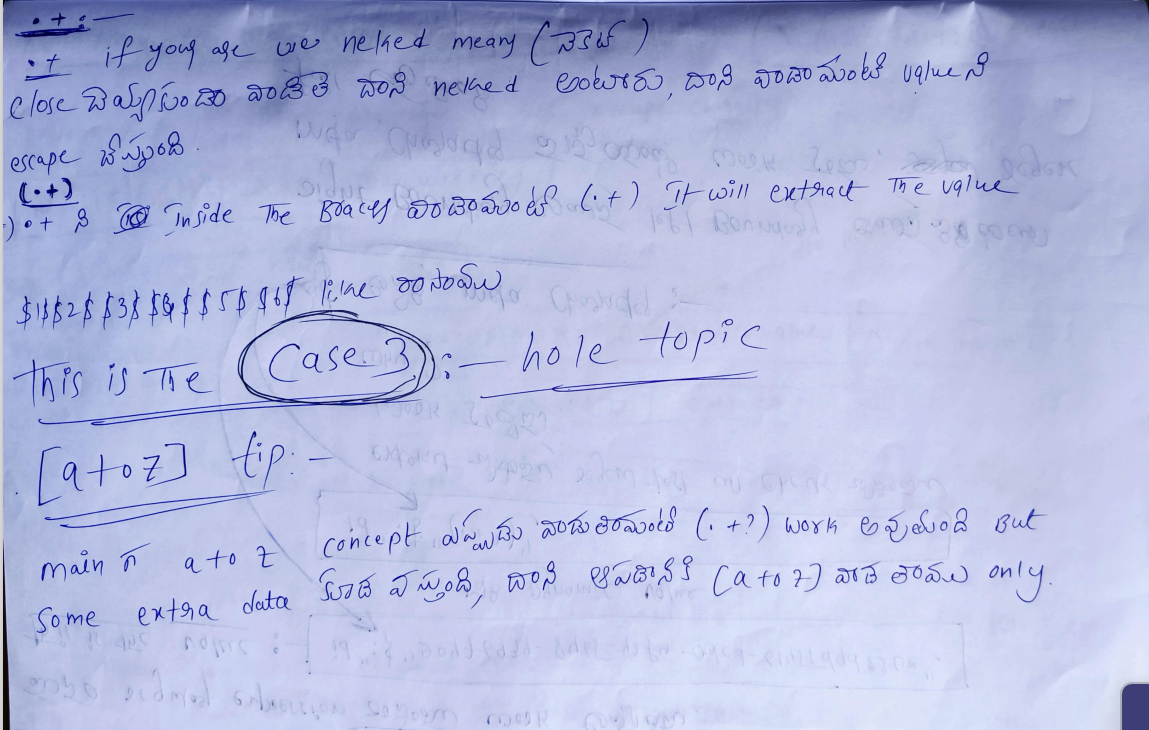 .+ :—
.+ if your are we neked meany (నెకెడ్)
close చెయ్యకుండా వాడితే దాని neked అంటారు, దాని వాడామంటే value ని
escape చేస్తుంది.
(.+)
:) .+ ని Inside The Braces వాడామంటే (.+) It will extract The value
$1$$2$ $3$ $4$ $5$ $6$ like రాసాము
This is The Case 3 :— hole topic
[a to z] tip:-
main గ a to z concept ఎప్పుడు వాడుతామంటే (.+?) work అవుతుంది But
Some extra data కూడ వస్తుంది, దాని ఆపడానికి (a to z) వాడతాము only.